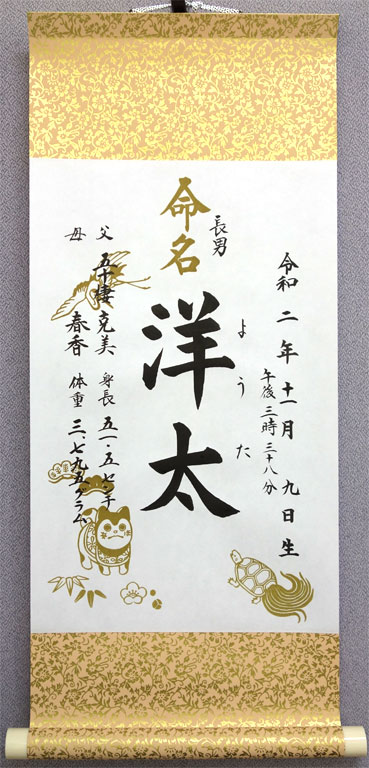 令和二年十一月九日生
午後三時三十八分
長男
命名
洋太
ようた
父 五十棲 克美
母 春香
身長 五一・五センチ
体重 三、七九五グラム